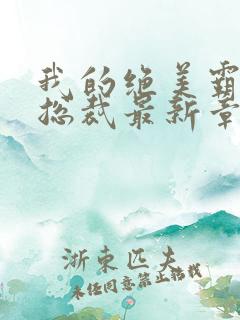 我的绝美霸
总裁最新章
浙东匹夫
未经同意禁止转载